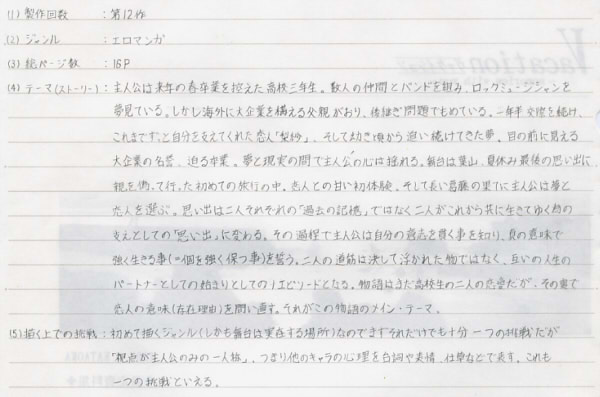 (1) 製作回数 : 第12作
(2) ジャンル : エロマンガ
(3) 総ページ数 : 16P
(4) テーマ(ストーリー) : 主人公は来年の春卒業を控えた高校三年生。数人の仲間とバンドを組み、ロックミュージシャンを
夢見ている。しかし海外に大企業を構える父親がおり、後継ぎ問題でもめている。一年半交際を続け、
これまでずっと自分を支えてくれた恋人「梨紗」、そして幼き頃から追い続けてきた夢。目の前に見える
大企業の名誉、迫る卒業。夢と現実の間で主人公の心は揺れる。舞台は葉山、夏休み最後の思い出に
親を偽って行った初めての旅行の中。恋人との甘い初体験、そして長い葛藤の果てに主人公は夢と
恋人を選ぶ。思い出は二人それぞれの「過去の記憶」ではなく二人がこれから共に生きてゆく為の
支えとしての「思い出」に変わる。その過程で主人公は自分の意志を貫く事を知り、真の意味で
強く生きる事(=個を強く保つ事)を誓う。二人の道筋は決して浮かれた物ではなく、互いの人生の
パートナーとしての始まりとしての1エピソードとなる。物語はまだ高校生の二人の恋愛だが、その裏で
恋人の意味(存在理由)を問い直す。それがこの物語のメイン・テーマ。
(5) 描く上での挑戦 : 初めて描くジャンル(しかも舞台は実在する場所)なのでまずそれだけでも十分一つの挑戦だが
「視点が主人公のみの一人旅」、つまり他のキャラの心理を台詞や表情、仕草などで表す。これも
一つの挑戦といえる。